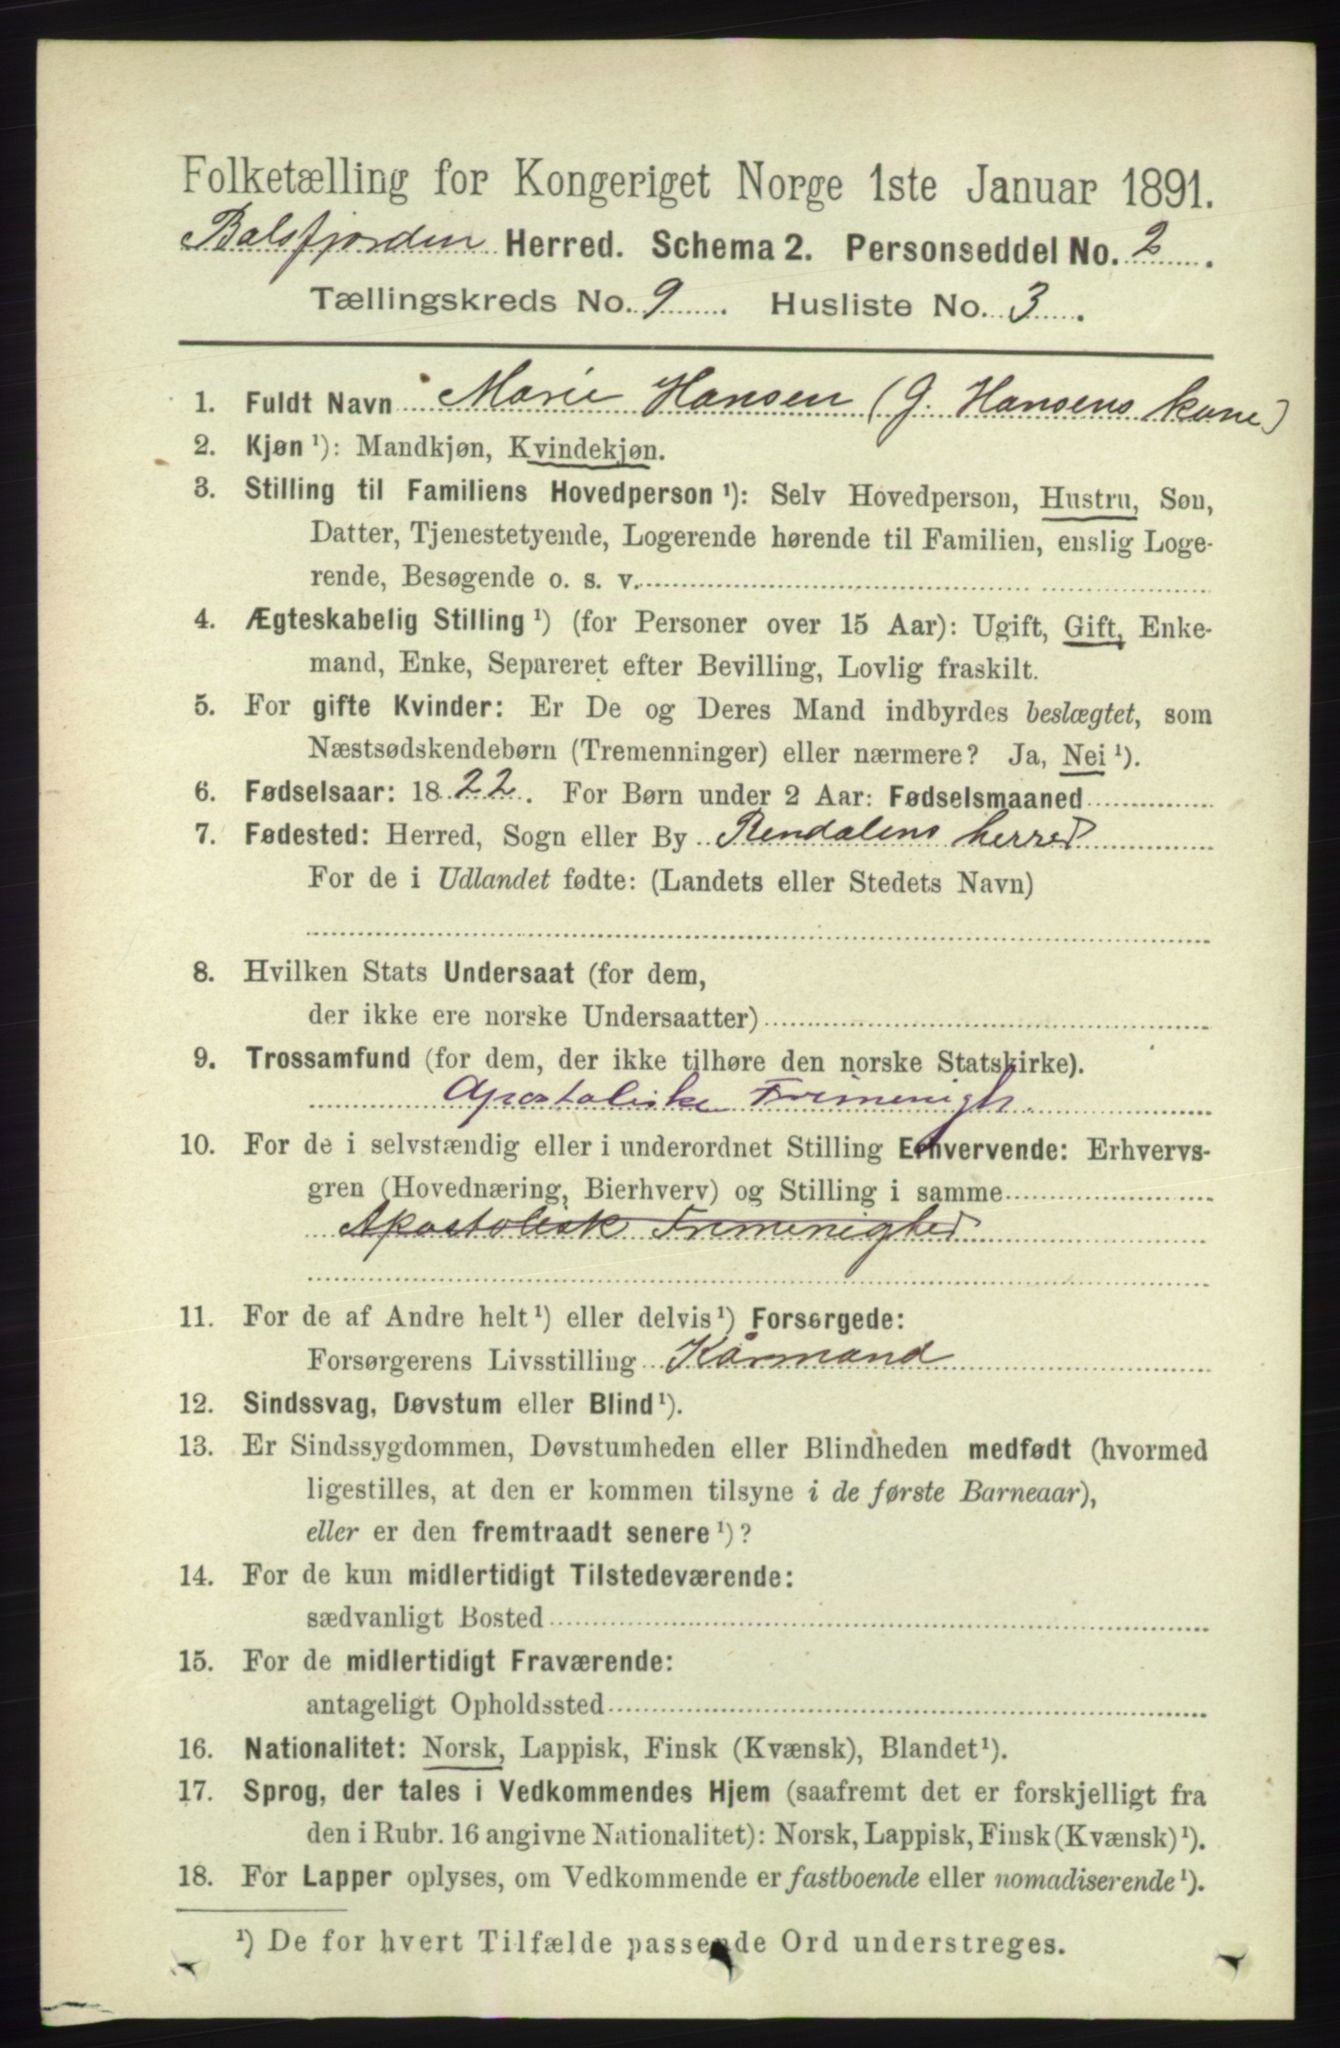 Folketælling for Kongeriget Norge 1ste Januar 1891.
Balsfjorden Herred. Schema 2. Personseddel No. 2.
Tællingskreds No. 9. Husliste No. 3.
1. Fuldt Navn Marie Hansen (J. Hansens kone)
2. Kjøn ¹): Mandkjøn, Kvindekjøn.
3. Stilling til Familiens Hovedperson ¹): Selv Hovedperson, Hustru, Søn,
Datter, Tjenestetyende, Logerende hørende til Familien, enslig Loge-
rende, Besøgende o. s. v.
4. Ægteskabelig Stilling ¹) (for Personer over 15 Aar): Ugift, Gift, Enke-
mand, Enke, Separeret efter Bevilling, Lovlig fraskilt.
5. For gifte Kvinder: Er De og Deres Mand indbyrdes beslægtet, som
Næstsødskendebørn (Tremenninger) eller nærmere? Ja, Nei ¹).
6. Fødselsaar: 1822. For Børn under 2 Aar: Fødselsmaaned
7. Fødested: Herred, Sogn eller By Rendalens herred
For de i Udlandet fødte: (Landets eller Stedets Navn)
8. Hvilken Stats Undersaat (for dem,
der ikke ere norske Undersaatter)
9. Trossamfund (for dem, der ikke tilhøre den norske Statskirke).
Apostoliske Frimenigh.
10. For de i selvstændig eller i underordnet Stilling Erhvervende: Erhvervs-
gren (Hovednæring, Bierhverv) og Stilling i samme
Apostolisk Frimenighed
11. For de af Andre helt ¹) eller delvis ¹) Forsørgede:
Forsørgerens Livsstilling Kårmand
12. Sindssvag, Døvstum eller Blind ¹).
13. Er Sindssygdommen, Døvstumheden eller Blindheden medfødt (hvormed
ligestilles, at den er kommen tilsyne i de første Barneaar),
eller er den fremtraadt senere ¹)?
14. For de kun midlertidigt Tilstedeværende:
sædvanligt Bosted
15. For de midlertidigt Fraværende:
antageligt Opholdssted
16. Nationalitet: Norsk, Lappisk, Finsk (Kvænsk), Blandet ¹).
17. Sprog, der tales i Vedkommendes Hjem (saafremt det er forskjelligt fra
den i Rubr. 16 angivne Nationalitet): Norsk, Lappisk, Finsk (Kvænsk) ¹).
18. For Lapper oplyses, om Vedkommende er fastboende eller nomadiserende ¹).
¹) De for hvert Tilfælde passende Ord understreges.